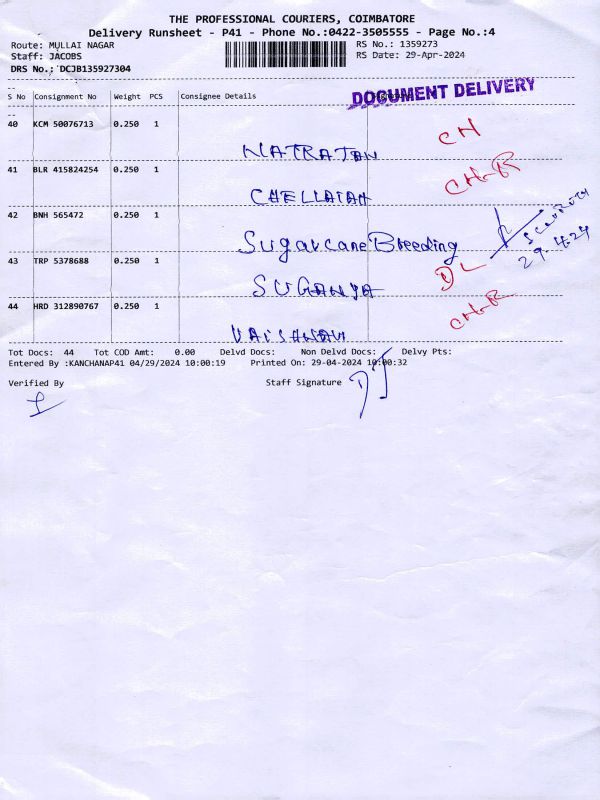 THE PROFESSIONAL COURIERS, COIMBATORE
Delivery Runsheet - P41 - Phone No.:0422-3505555 - Page No.:4
Route: MULLAI NAGAR RS No.: 1359273
Staff: JACOBS RS Date: 29-Apr-2024
DRS No.: DCJB135927304
DOCUMENT DELIVERY
S No Consignment No Weight PCS Consignee Details
40 KCM 50076713 0.250 1
NATRAJAN CH
41 BLR 415824254 0.250 1
CHELLAIAH CHLR
42 BNH 565472 0.250 1
Sugarcane Breeding
SECURITY
29.4.24
43 TRP 5378688 0.250 1
SUGANYA DL
44 HRD 312890767 0.250 1
VAISHNAVI CHLR
Tot Docs: 44 Tot COD Amt: 0.00 Delvd Docs: Non Delvd Docs: Delvy Pts:
Entered By :KANCHANAP41 04/29/2024 10:00:19 Printed On: 29-04-2024 10:00:32
Verified By Staff Signature